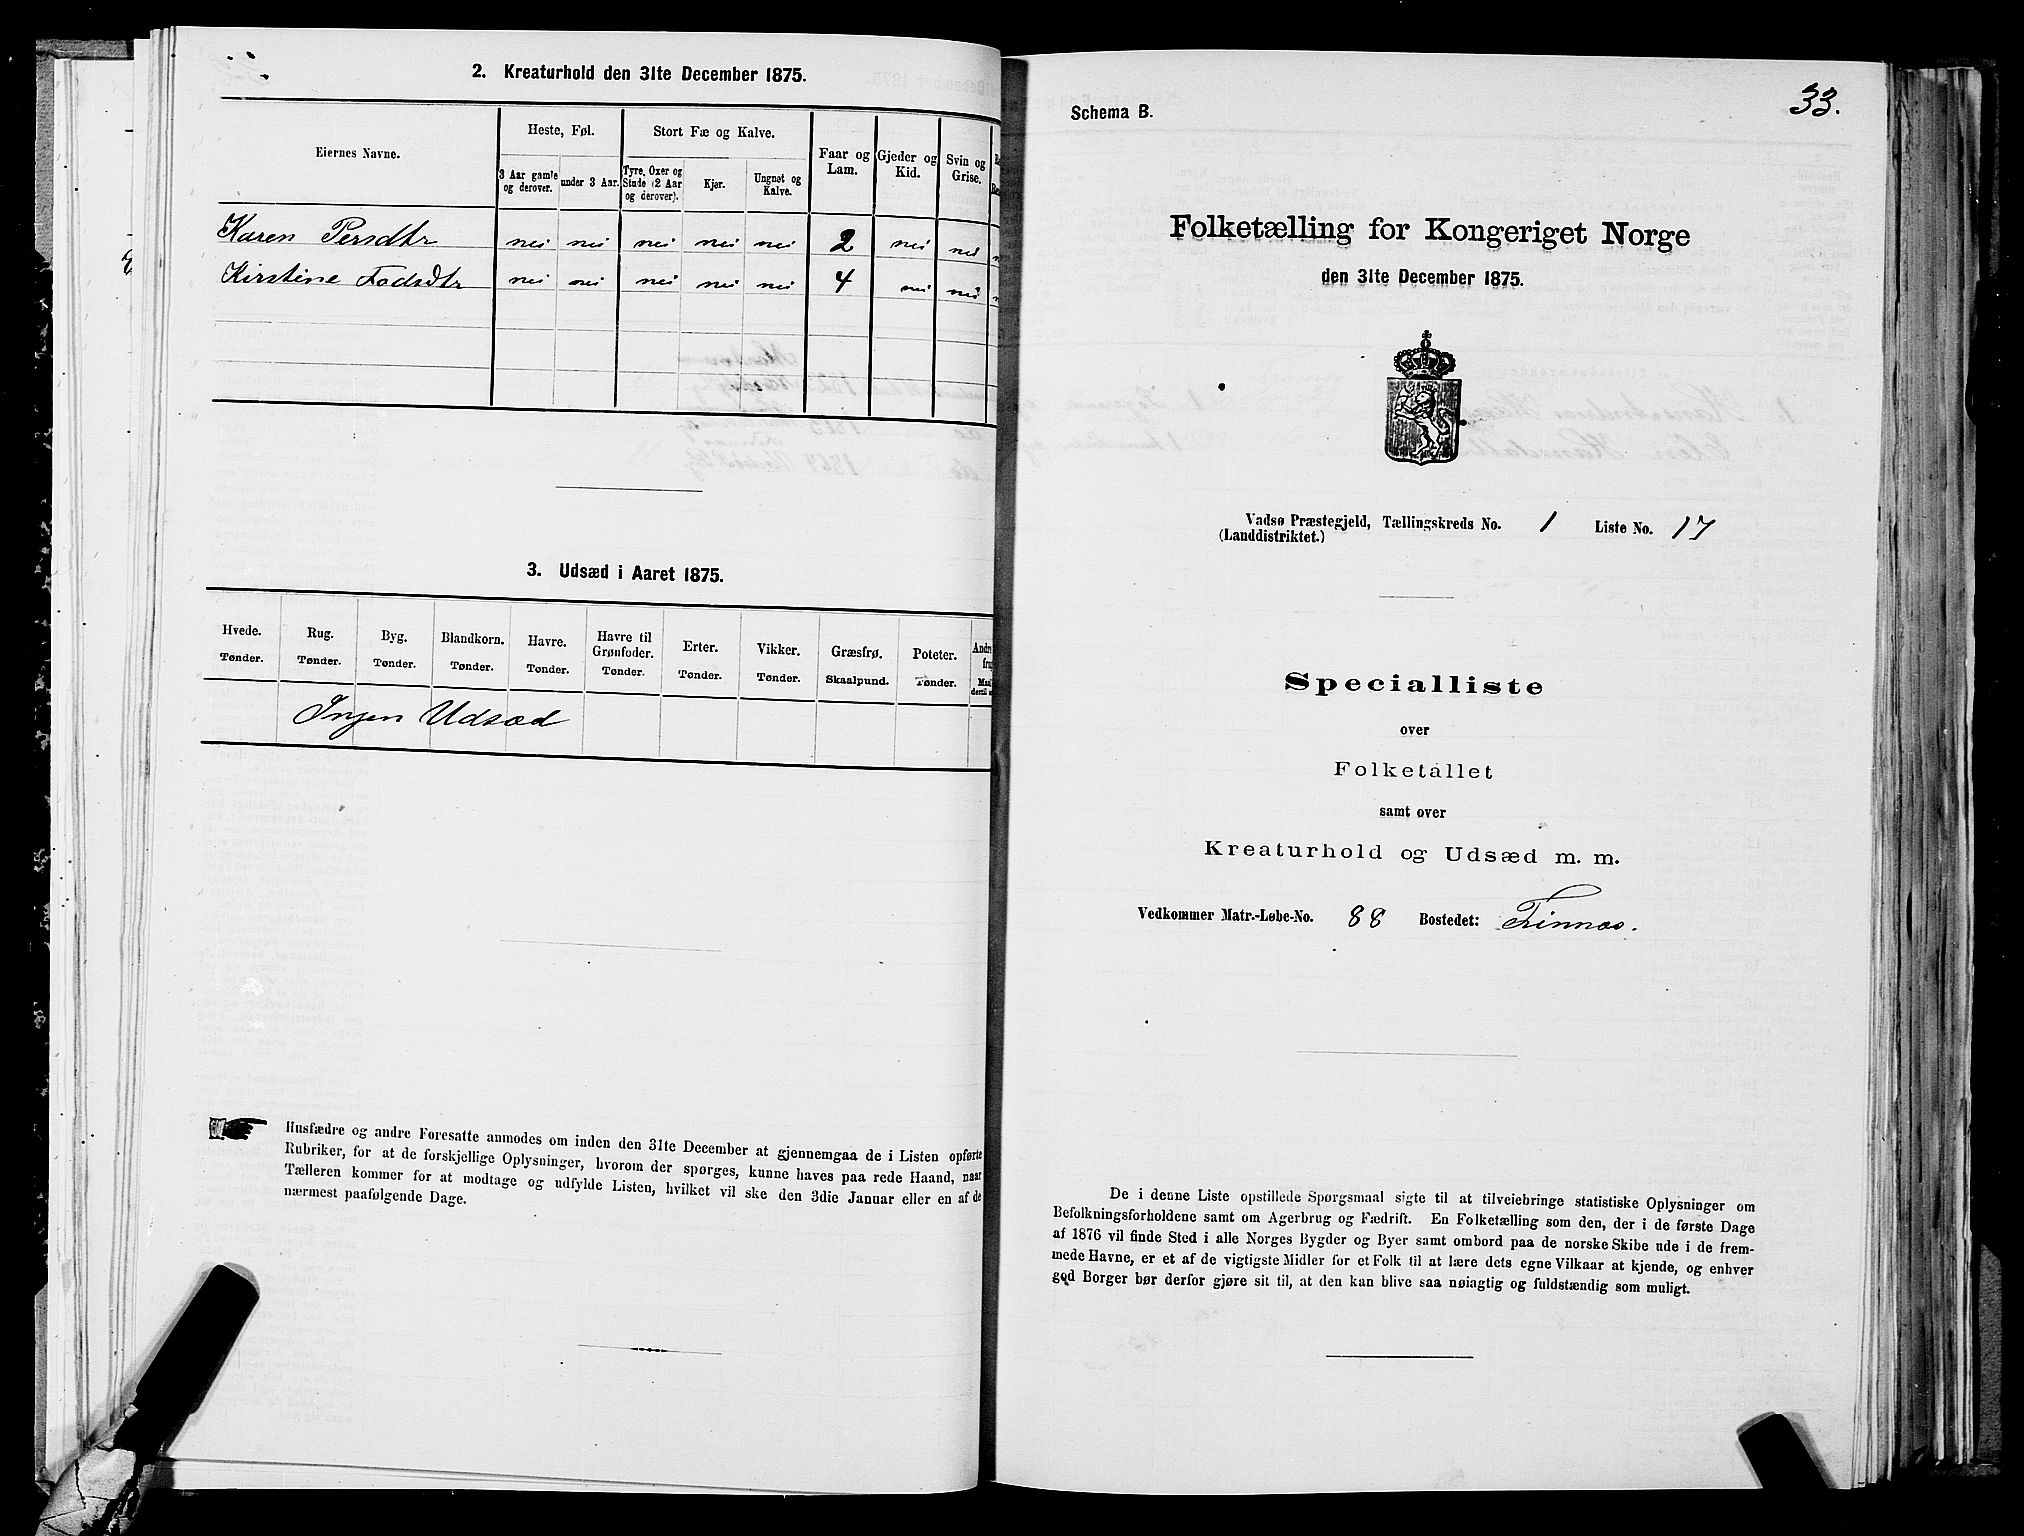 2. Kreaturhold den 31te December 1875.
Eiernes Navne.
Heste, Føl.
Stort Fæ og Kalve.
Faar og Lam.
Gjeder og Kid.
Svin og Grise.
3 Aar gamle og derover.
under 3 Aar.
Tyre, Oxer og Stude (2 Aar og derover).
Kjør.
Ungnøt og Kalve.
Karen Persdtr nei nei nei nei nei 2 nei nei
Kirstine nei nei nei nei nei 4 nei nei
3. Udsæd i Aaret 1875.
Hvede. Rug. Byg. Blandkorn. Havre. Havre til Grønfoder. Erter. Vikker. Græsfrø. Poteter.
Tønder. Tønder. Tønder. Tønder. Tønder. Tønder. Tønder. Tønder. Skaalpund. Tønder.
Ingen Udsæd
Husfædre og andre Foresatte anmodes om inden den 31te December at gjennemgaa de i Listen opførte
Rubriker, for at de forskjellige Oplysninger, hvorom der spørges, kunne haves paa rede Haand, naar
Tælleren kommer for at modtage og udfylde Listen, hvilket vil ske den 3die Januar eller en af de
nærmest paafølgende Dage.
33.
Schema B.
Folketælling for Kongeriget Norge
den 31te December 1875.
Vadsø Præstegjeld, Tællingskreds No. 1 Liste No. 17
(Landdistriktet.)
Specialliste
over
Folketallet
samt over
Kreaturhold og Udsæd m. m.
Vedkommer Matr.-Løbe-No. 88 Bostedet: Finnæs.
De i denne Liste opstillede Spørgsmaal sigte til at tilveiebringe statistiske Oplysninger om
Befolkningsforholdene samt om Agerbrug og Fædrift. En Folketælling som den, der i de første Dage
af 1876 vil finde Sted i alle Norges Bygder og Byer samt ombord paa de norske Skibe ude i de frem-
mede Havne, er et af de vigtigste Midler for et Folk til at lære dets egne Vilkaar at kjende, og enhver
god Borger bør derfor gjøre sit til, at den kan blive saa nøiagtig og fuldstændig som muligt.